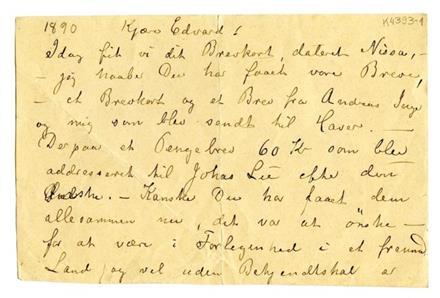 1890 Kjære Edvard! K4393-1
Idag fik vi dit Brevkort, dateret Nissa, –
– jeg haaber Du har faaet vore Breve,
– et Brevkort og et Brev fra Andreas Inge
og mig som blev sendt til Havre. –
Derpaa et Pengebrev 60 Kr som blev
addresseret til Johas Lie efter din
Ønske. – Kanske Du har faaet dem
allesammen nu, det var at ønske –
for at være i Forlegenhed i et fremmed
Land og vel uden Bekjendtskab er